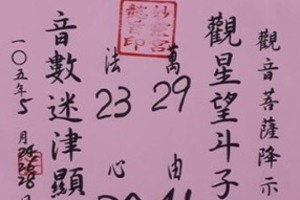 觀音菩薩降示
觀星望斗子
萬 29 由
法 23 心
音數迷津顯
一〇五年5月